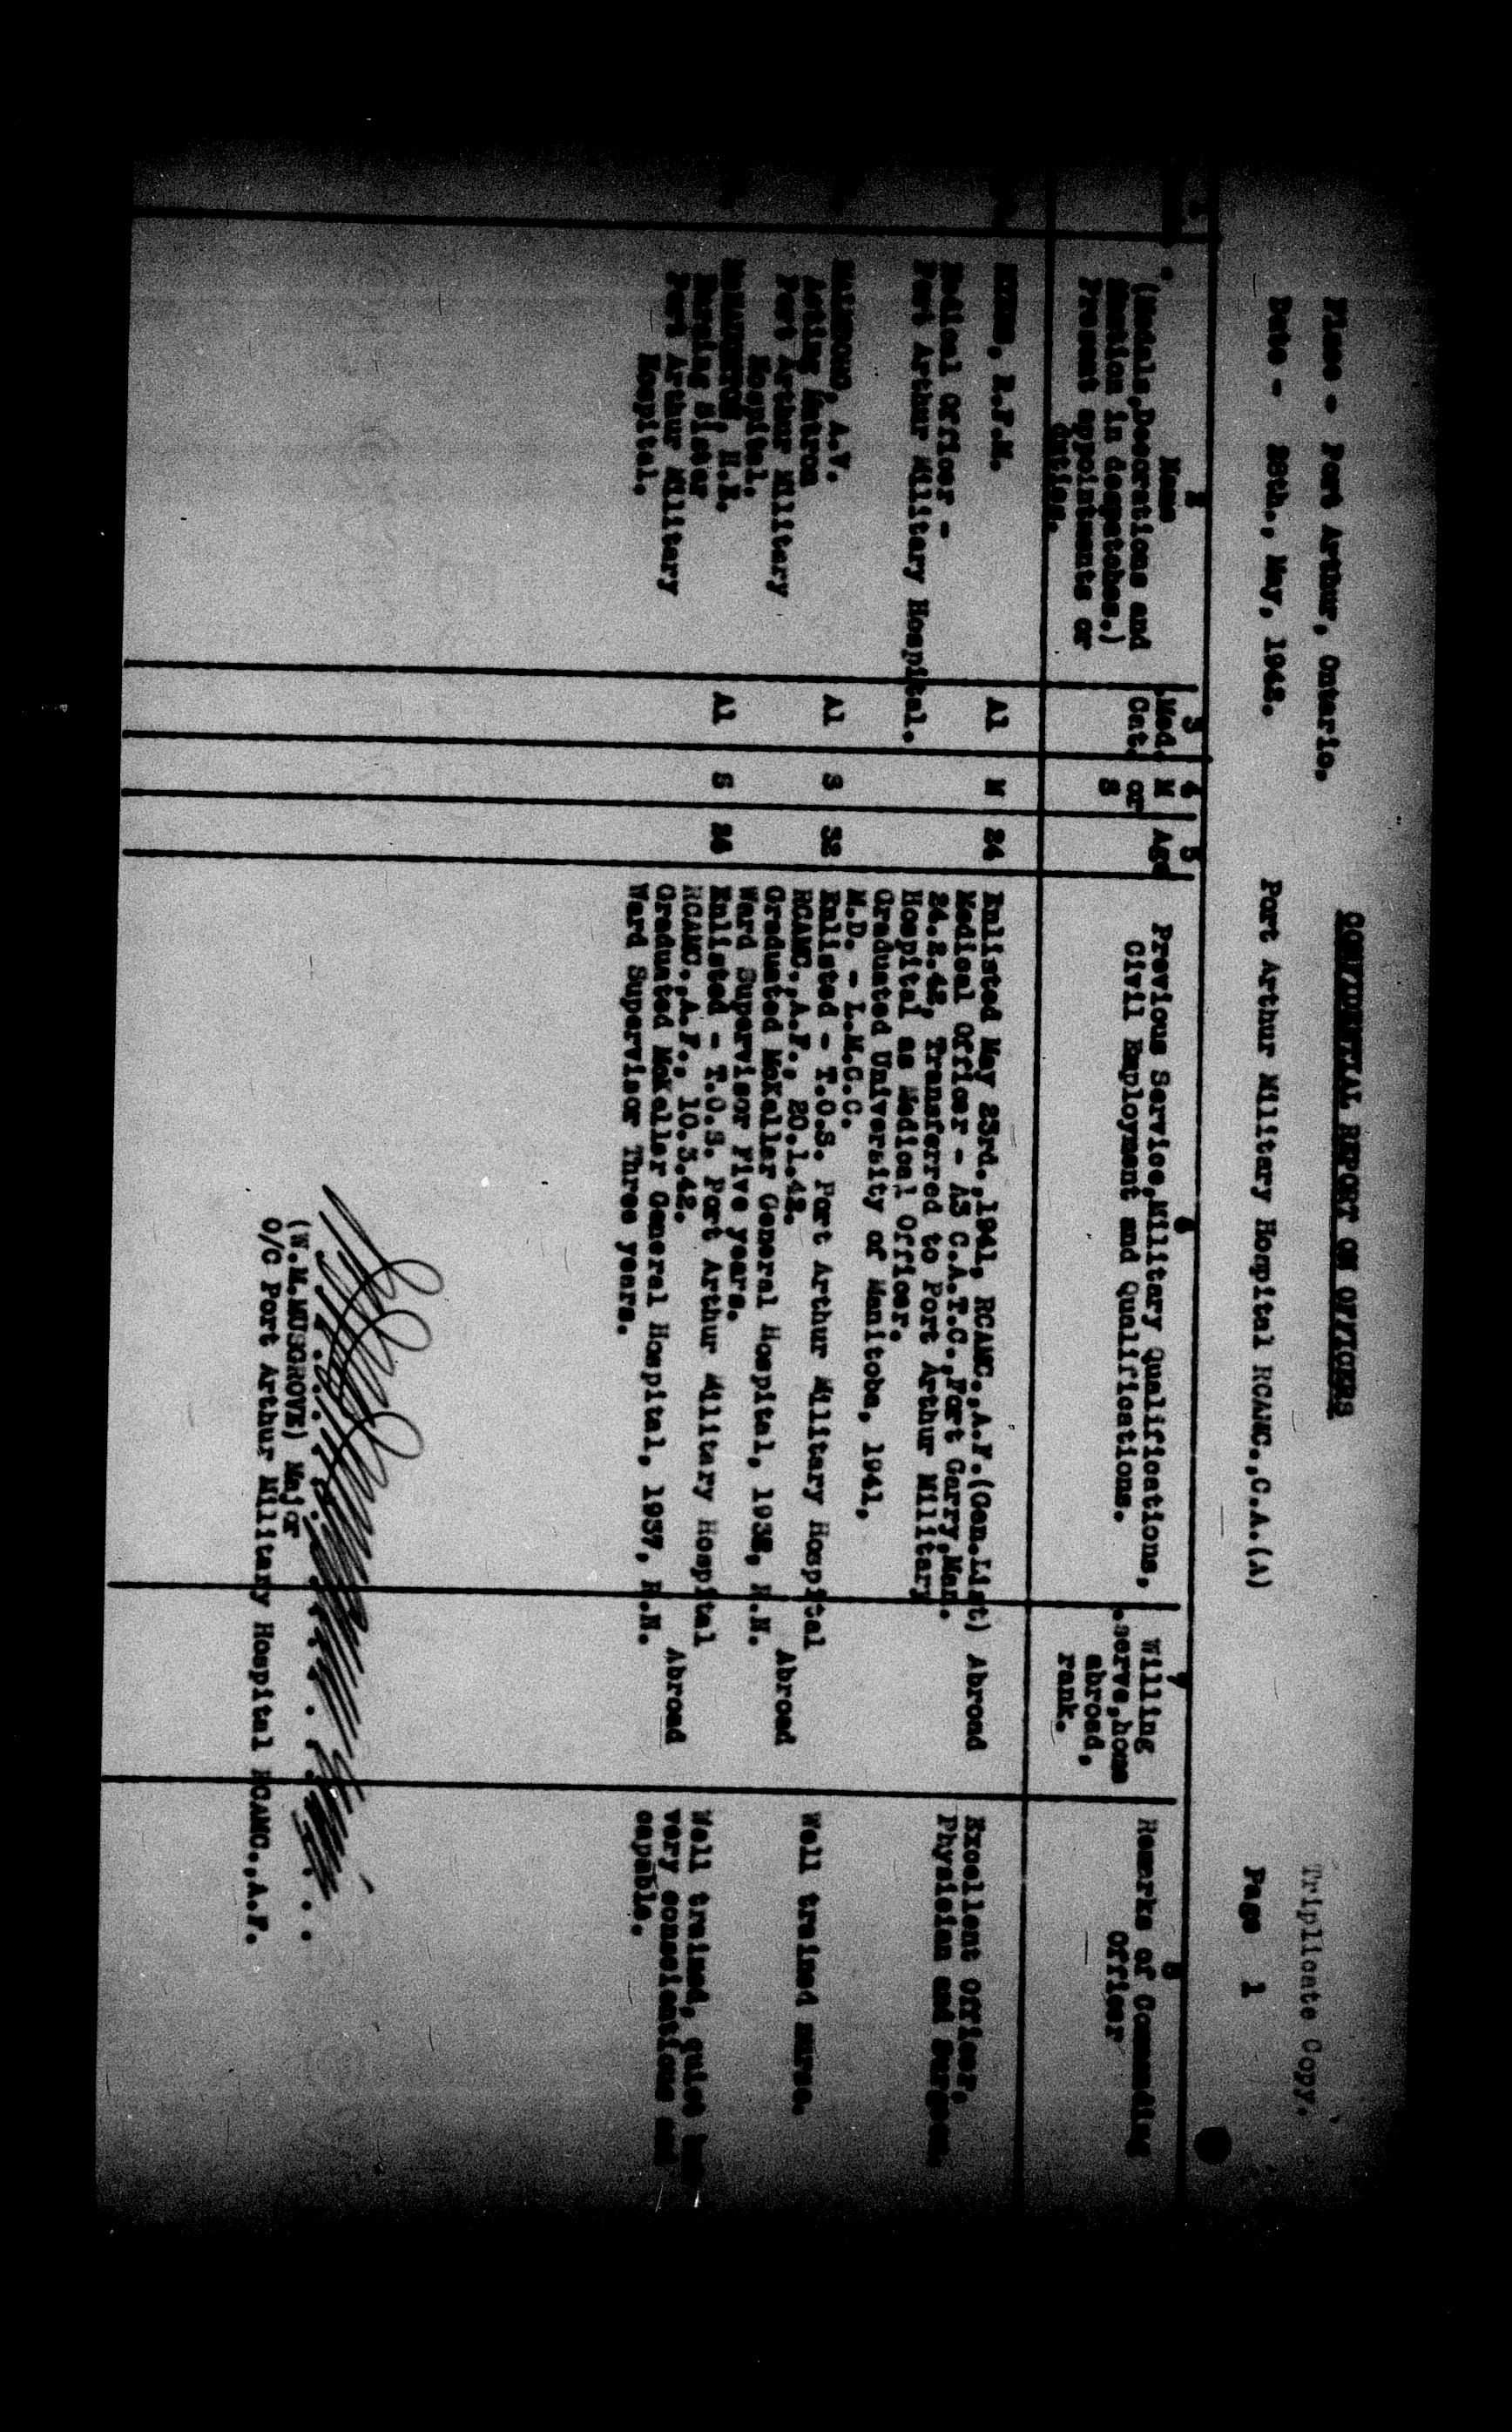 Triplicate Copy.
CONFIDENTIAL REPORT ON OFFICERS
Place - Port Arthur, Ontario.
Date - 28th., May, 1942. Port Arthur Military Hospital RCAMC.,C.A.(A) Page 1
3 4 5 6 7 8
Name Med. M Age Previous Service,Military Qualifications, Willing Remarks of Commanding
(Medals,Decorations and Cat. or Civil Employment and Qualifications. serve,home Officer
Mention in despatches.) S abroad,
Present appointments or rank.
Duties.
R.F.M. A1 M 24 Enlisted May 23rd.,1941, RCAMC.,A.F.(Gen.List) Abroad Excellent Officer,
Medical Officer - Medical Officer - A3 C.A.T.C.,Fort Garry,Man. Physician and Surgeon.
Port Arthur Military Hospital. 24.2.42, Transferred to Port Arthur Military
Hospital as Medical Officer.
Graduated University of Manitoba, 1941,
M.D. - L.M.C.C.
A.V. A1 S 32 Enlisted - T.O.S. Port Arthur Military Hospital Well trained nurse.
Acting Matron RCAMC.,A.F., 20.1.42.
Port Arthur Military Graduated McKellar General Hospital, 1935, R.N. Abroad
Hospital. Ward Supervisor Five years.
H.E. A1 S Enlisted - T.O.S. Port Arthur Military Hospital Well trained, quiet but
Nursing Sister RCAMC.,A.F., 10.3.42. very conscientious and
Port Arthur Military Graduated McKellar General Hospital, 1937, R.N. Abroad capable.
Hospital. Ward Supervisor Three years.
(W.M.MUSGROVE) Major
O/C Port Arthur Military Hospital RCAMC.,A.F.